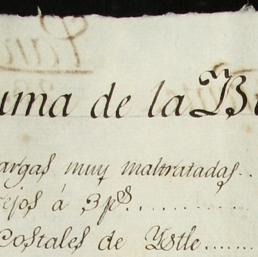 uma de la B
argas muy maltratadas..
ejos á 3p̣s..........
Costales de Ystle......